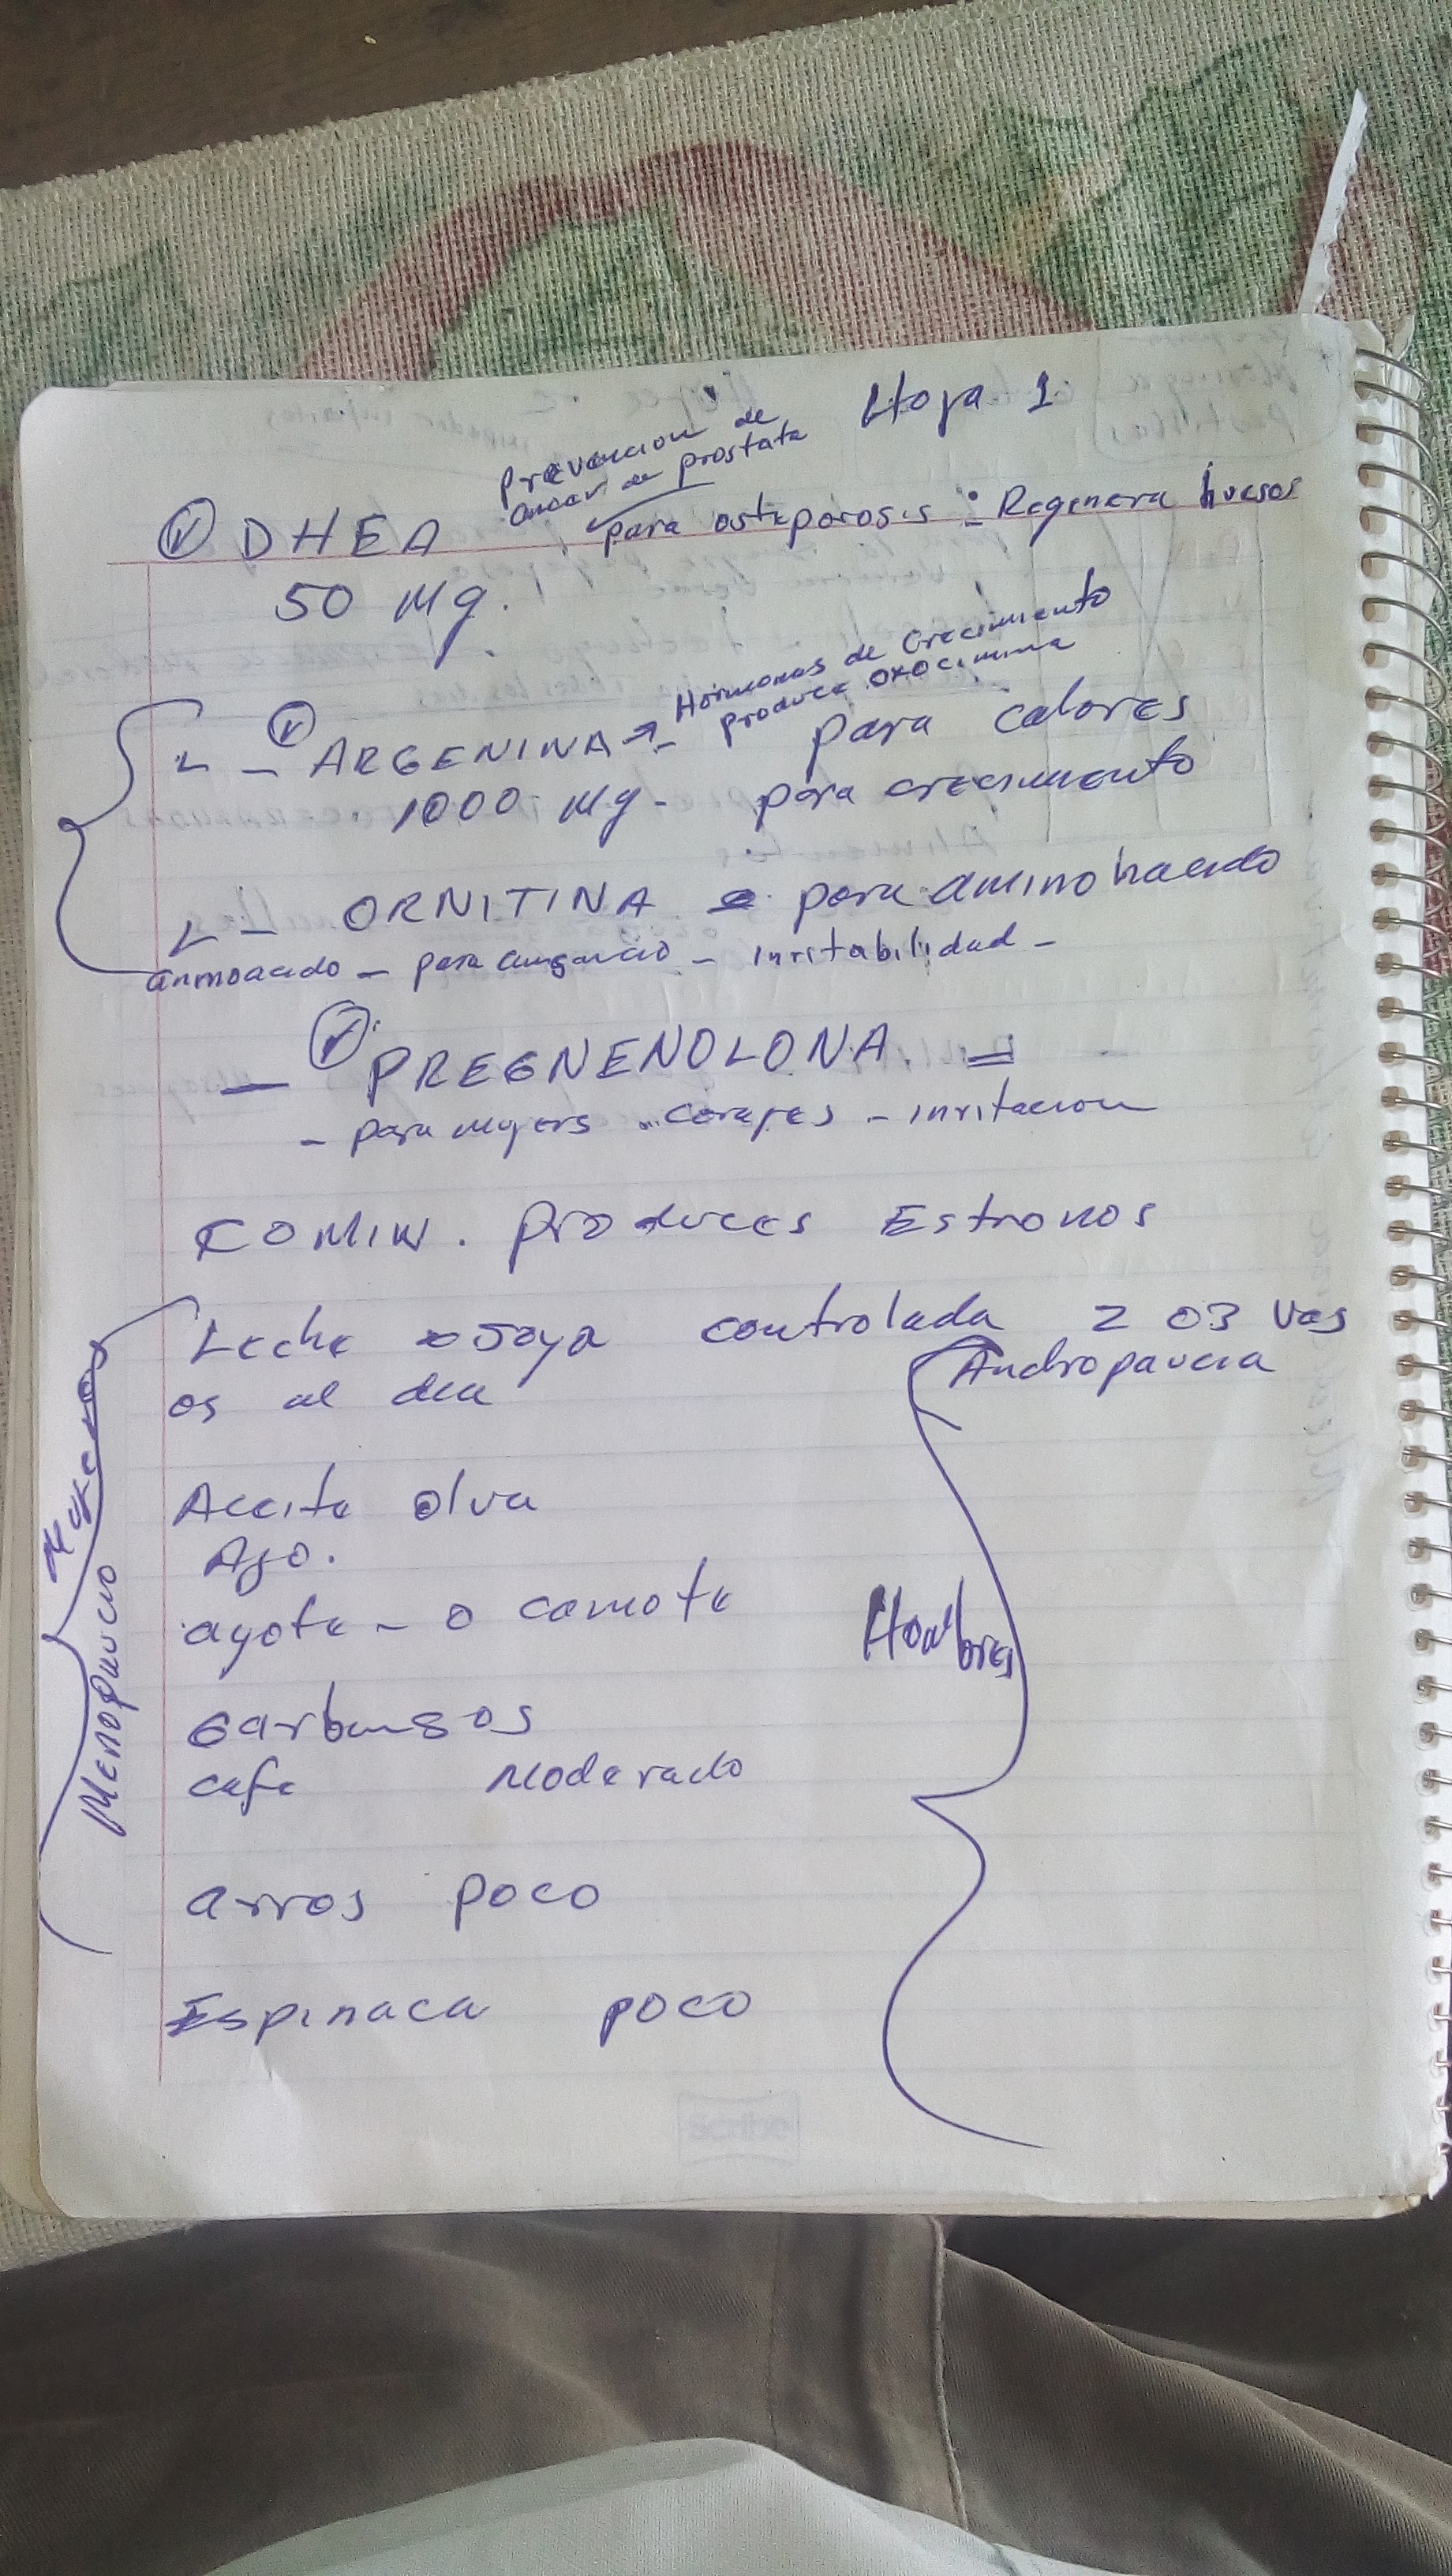 Hoja 1
Prevencion de
cancer de prostata
DHEA para osteporosis : - Regenera huesos
50 Mg.
Hormonas de Crecimiento
produce oxocimina
L - ARGENINA → - para calores
1000 Mg - para crecimiento
L - ORNITINA para aminohacido
anmoacido - para cansancio - inritabilidad -
- PREGNENOLONA =
- para mujers corajes - inritacion
COMIN. produces Estronos
Leche soya controlada 2 o 3 vas
os al dia
Andropaucia
Aceite olva
Ajo.
ayote - o camote
Garbansos
cafe Moderado
arros poco
Espinaca poco
Mujeres
Menopaucio
Hombres